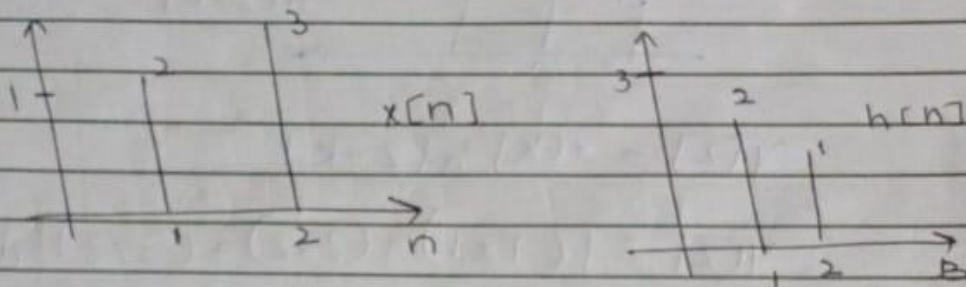 3
2
1
x[n]
1 2
n
3
2
1
h[n]
1 2